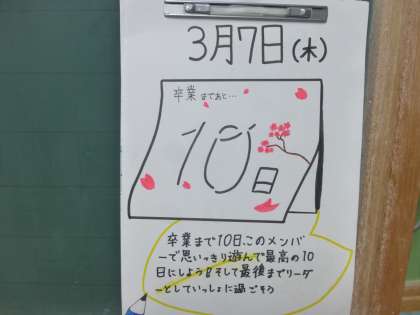 3月7日(木)
卒業まであと…
10日
卒業まで10日。このメンバ
ーで思いっきり遊んで最高の10
日にしよう!!そして最後までリーダ
ーとしていっしょに過ごそう